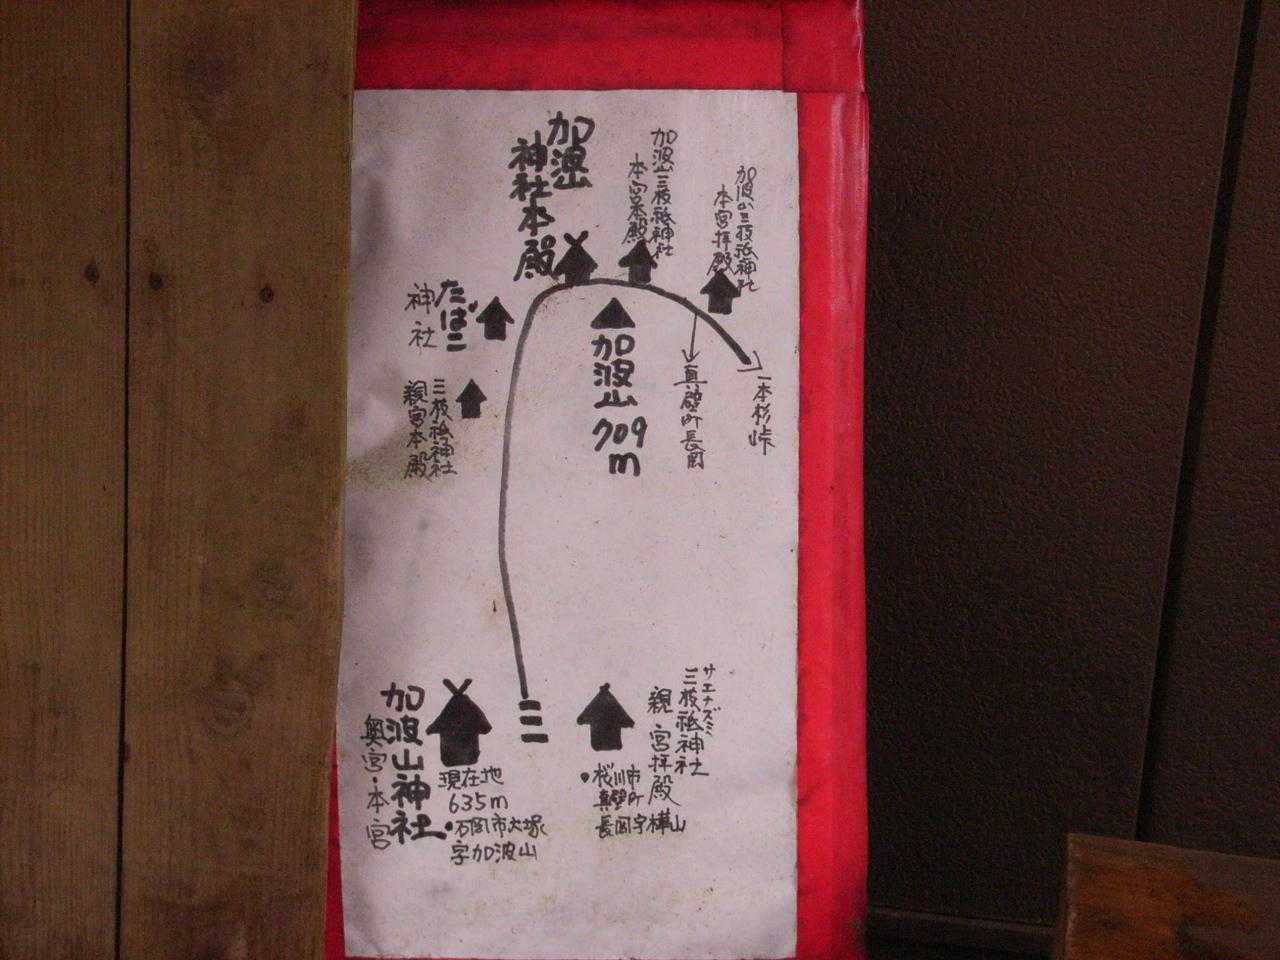 加波山
神社本殿
加波山三枝祗神社
本宮本殿
加波山三枝祗神社
本宮拝殿
たばこ
神社
加波山
709
m
真壁町長岡
一本杉峠
三枝祗神社
親宮本殿
加波山神社
奥宮・本宮
現在地
635m
・石岡市大塚
字加波山
サエナズミ
三枝祗神社
親宮拝殿
・桜川市
真壁町
長岡字樺山